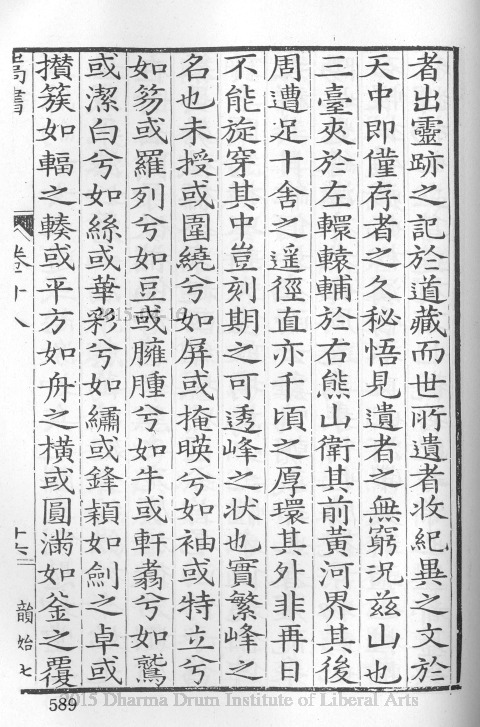 者出靈跡之記於道藏而世所遺者收紀異之文於
天中即僅存者之久秘悟見遺者之無窮况兹山也
三臺夾於左轘轅輔於右熊山衛其前黃河界其後
周遭足十舍之遥徑直亦千頃之厚環其外非再日
不能旋穿其中豈刻期之可透峰之状也實繁峰之
名也未授或圍繞兮如屏或掩暎兮如袖或特立兮
如笏或羅列兮如豆或臃腫兮如牛或軒翥兮如鷲
或潔白兮如絲或華彩兮如繡或鋒穎如劍之卓或
攅簇如輻之輳或平方如舟之橫或圓滿如釜之覆
嵩書
卷十八
十六
韻始七
589
2015 Dharma Drum Institute of Liberal Arts